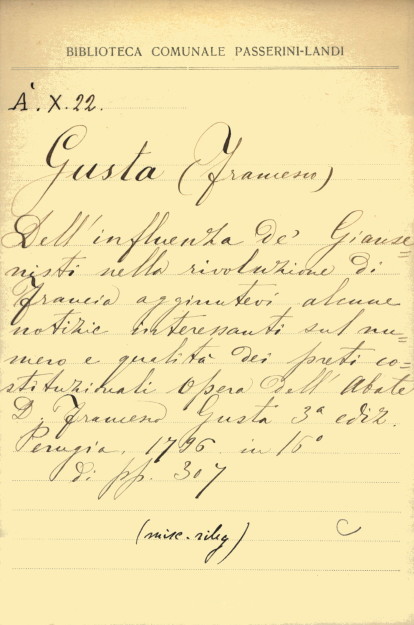 BIBLIOTECA COMUNALE PASSERINI-LANDI
A'. X. 22.
Gusta (Francesco)
Dell'influenza de' Gianse=
nisti nella rivoluzione di
Francia aggiuntevi alcune
notizie interessanti sul nu=
mero e qualità dei preti co=
stituzionali Opera dell'Abate
D. Francesco Gusta 3ª ediz.
Perugia, 1796 in 16°
di pp. 307
(misc. rileg) C